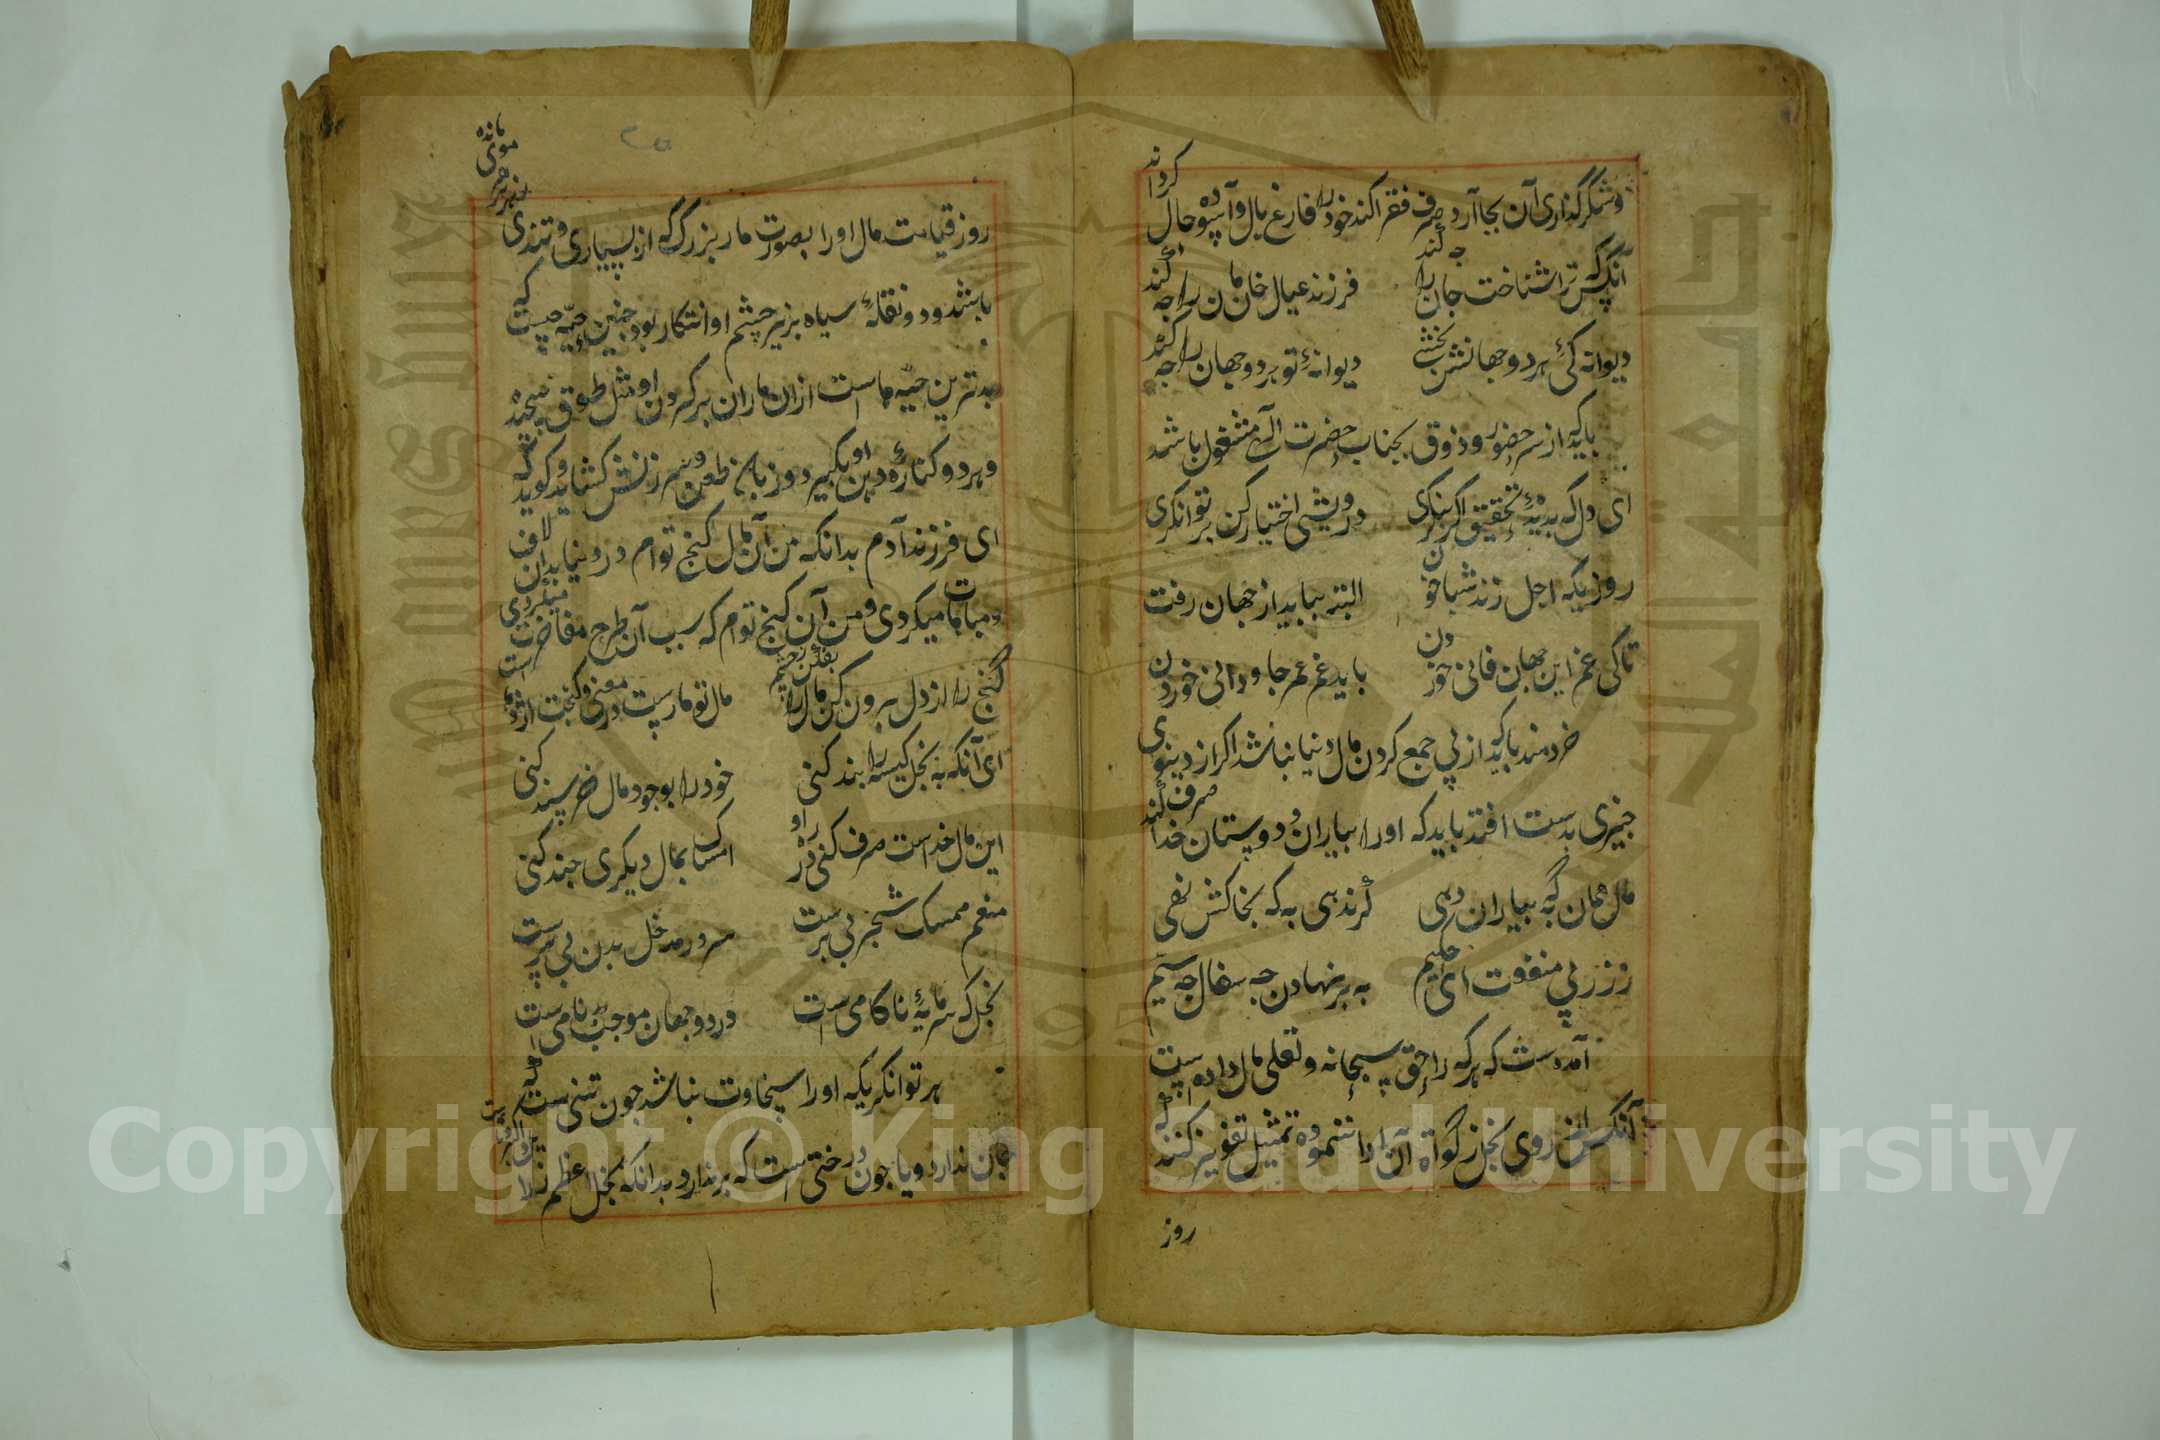 وشکر گذاری آن بجا آرد و صرف فقرا کند خود را فارغ بال و آسوده حال گرداند
آنکس که ترا شناخت جان را چه کند
فرزند عیال خان مان را چه کند
دیوانه کنی هر دو جهانش بخشی
دیوانه تو هر دو جهان را چه کند
باید که از سر حضور و ذوق بجناب حضرت الهی مشغول باشد
ای دل که بدیده تحقیق اگر بنگری
درویشی اختیار کن بر توانگری
روزیکه اجل زند شباخون
البته بباید از جهان رفت
تا کی غم این جهان فانی خوردن
باید غم عمر جاودانی خوردن
خردمند باید که از پی جمع کردن مال دنیا نباشد اگر از دینوی
چیزی بدست افتد باید که او را بیاران و دوستان خدا صرف کند
مال همان به که بیاران دهی
گر ندهی به که بخاکش نهی
زر ز پی منفعت ای حکیم
به بر نهادن چه سفال چه سیم
آمده ست که هر که را حق سبحانه و تعلی مال داده است
آنکس از روی بخل زکواة آن ادا ننموده تمثیل نفویز کنند که
روز
روز قیامت مال او را بصورت مار بزرگ که از بسیاری و تندی
باشد و دو نقله سیاه بزیر چشم او انتکار بود چنین حیه چیست که
بدترین حیه ماست ازان ماران بر گردن او مثل طوق پیچید
و هر دو کناره دهن او بگیرد و زبان طعن و سرزنش کشاید و کوید که
ای فرزند آدم بدانکه من آن مال گنج توام در دنیا بدان لاف
و مباهات میکردی و من آن گنج توام که سبب آن طرح مفاخرت میکردی
گنج را از دل برون کن مال را بفکن ز چشم
مال تو مار ست در معنی و گنجت اژدها است
ای آنکه به بخل کیسه را بند کنی
خود را بوجود مال خرسند کنی
این مال خداست صرف کنی در ره او
امساک بمال دیگری چند کنی
منعم ممسک شجر بی بر ست
سرور مدخل بدن بی سر ست
بخل که سرمایه ناکامی است
در دو جهان موجب بدنامی است
هر توانگریکه او را سخاوت نباشد چون تنی ست که
جان ندارد و یا چون درختی است که بر ندارد بدانکه بخل اعظم